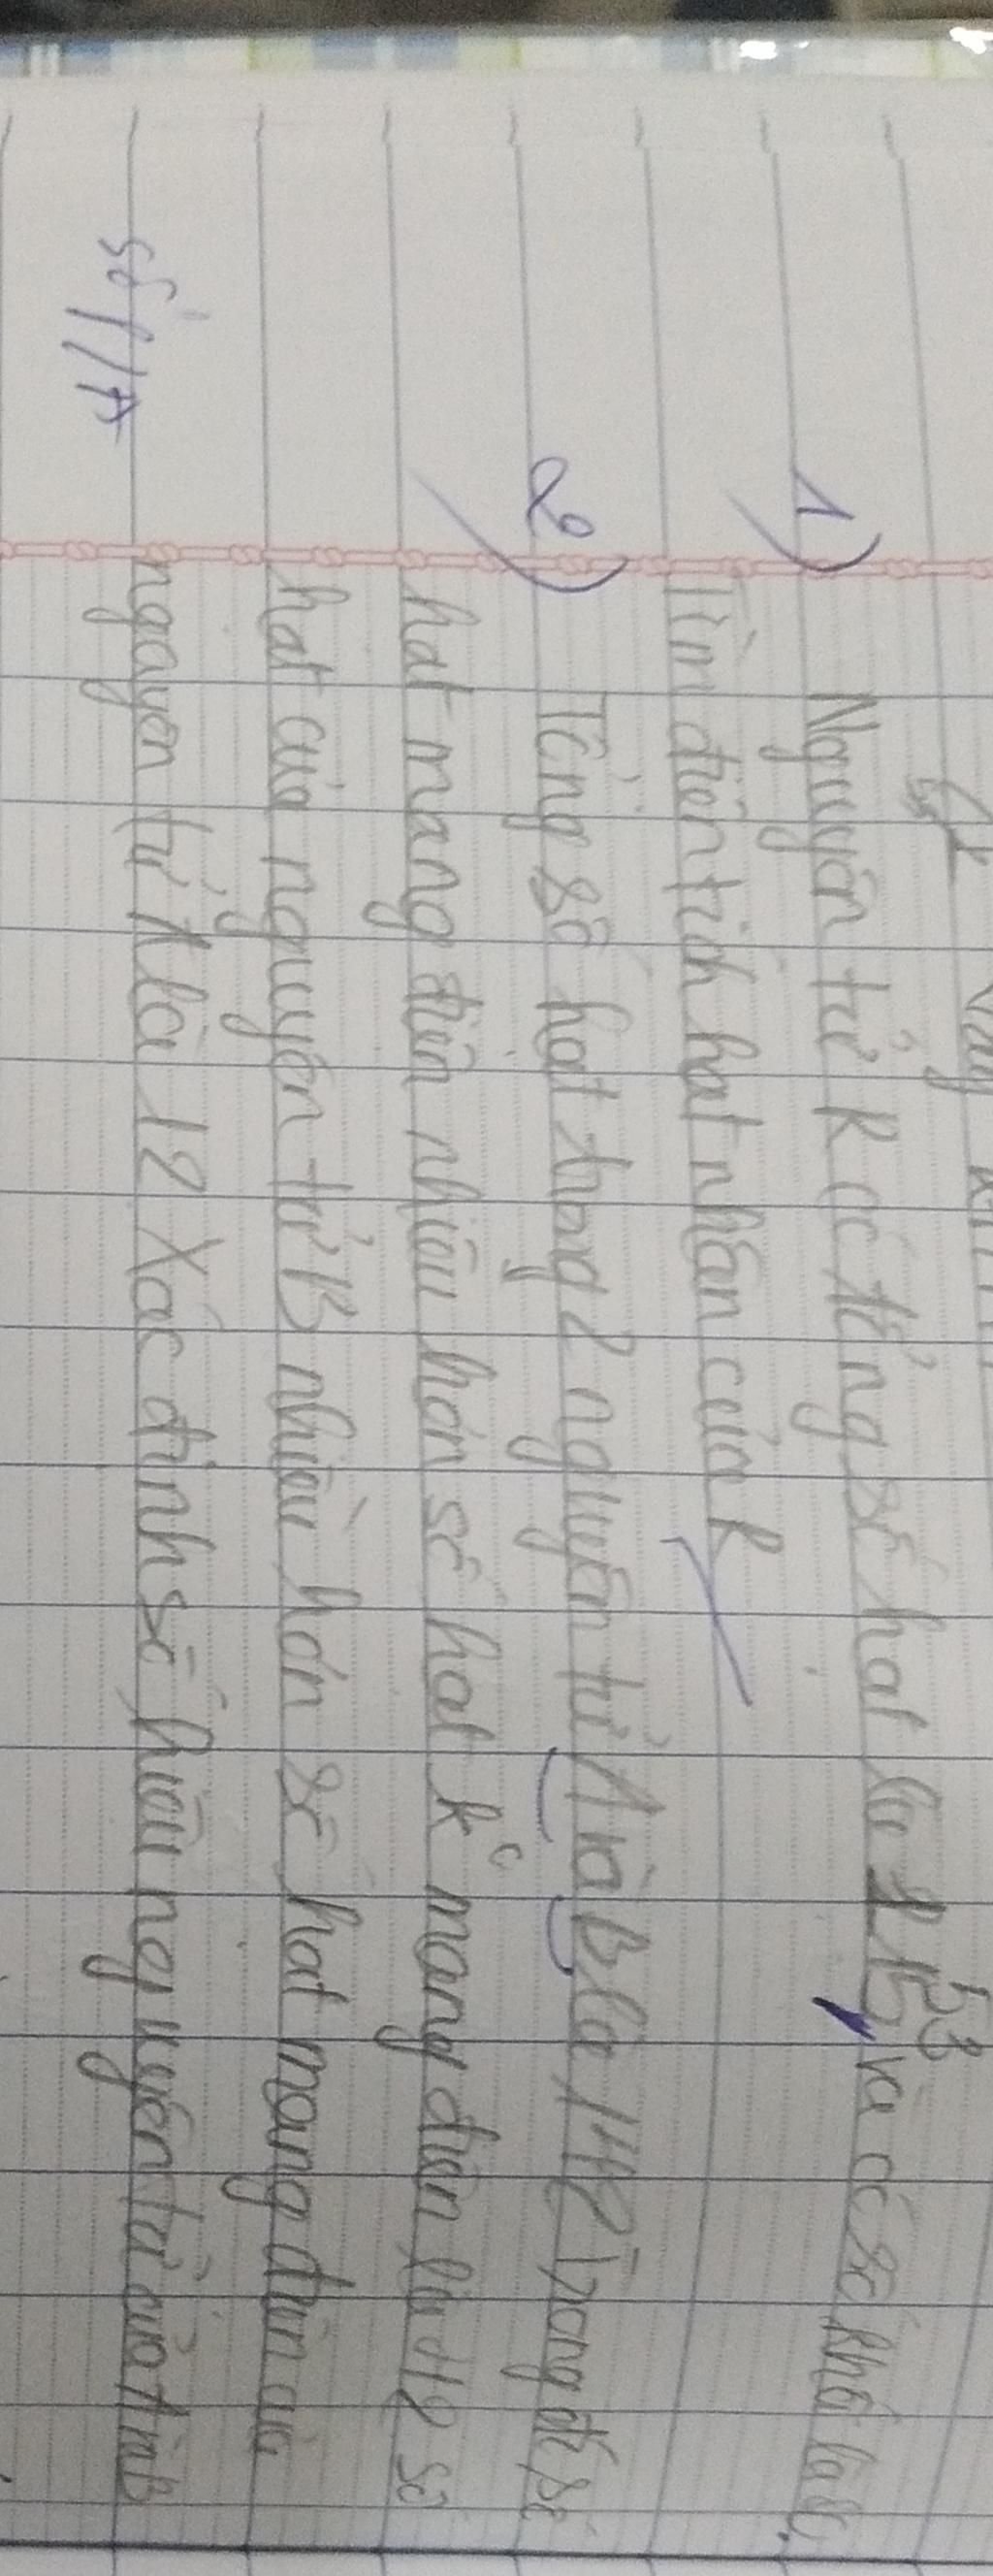 1) Nguyên tử R có tổng số hạt là 115 và có số khối là
53
Tìm điện tích hạt nhân của R
2) Tổng số hạt trong 2 nguyên tử A và B là 142 Trong đó số
hạt mang điện nhiều hơn số hạt k° mang điện là 42 số
hạt của nguyên tử B nhiều hơn số hạt mang điện của
nguyên tử A là 12 Xác định số hiệu nguyên tử của A và B